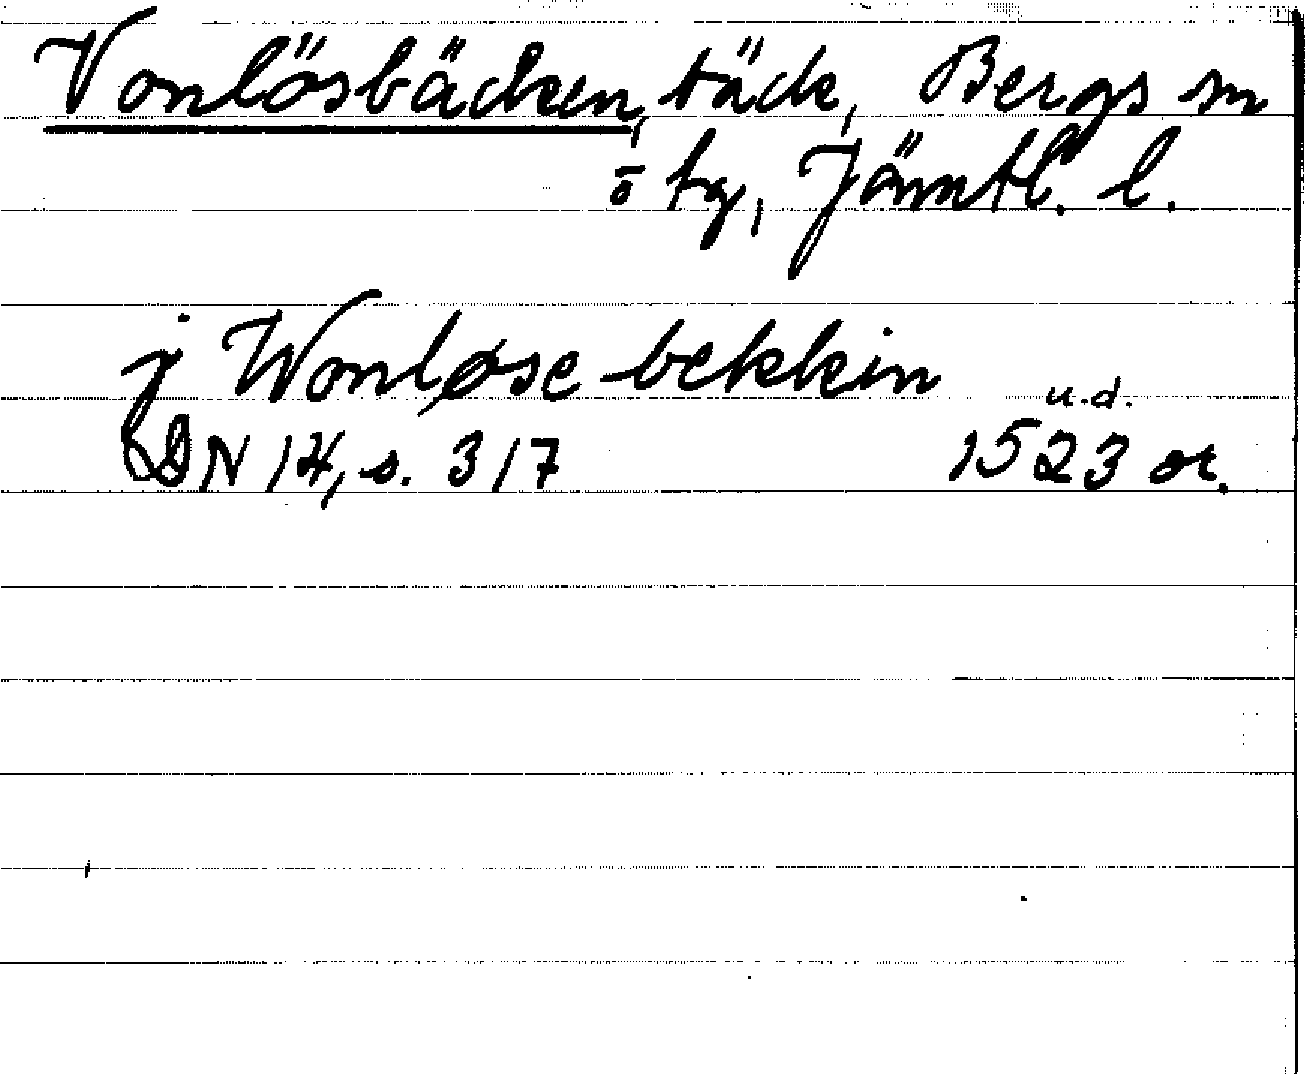 Vonlösbäcken, bäck, Bergs sn
ö tg, Jämtl. l.
j Wonløse bekkin
u.d.
DN 14, s. 317 1523 or.